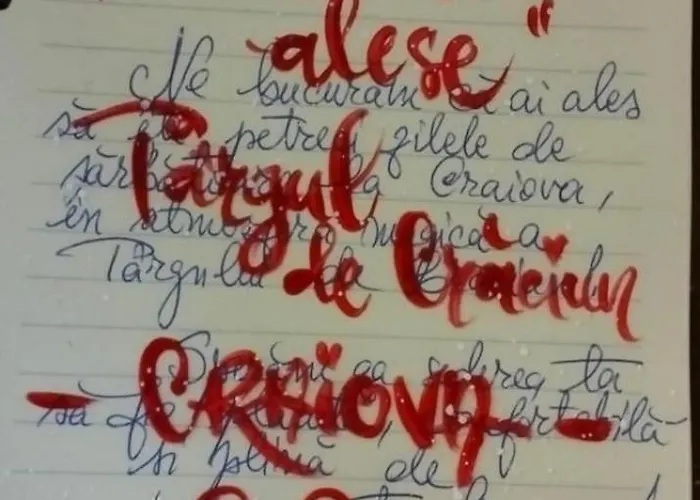 alese"
Ne bucurăm că ai ales
să îți petreci zilele de
Târgul
sărbătoare la Craiova,
în atmosfera magică a
de Crăciun
Târgului de Crăciun
Sperăm ca șederea ta
- CRAIOVA -
să fie plăcută, confortabilă
și plină de